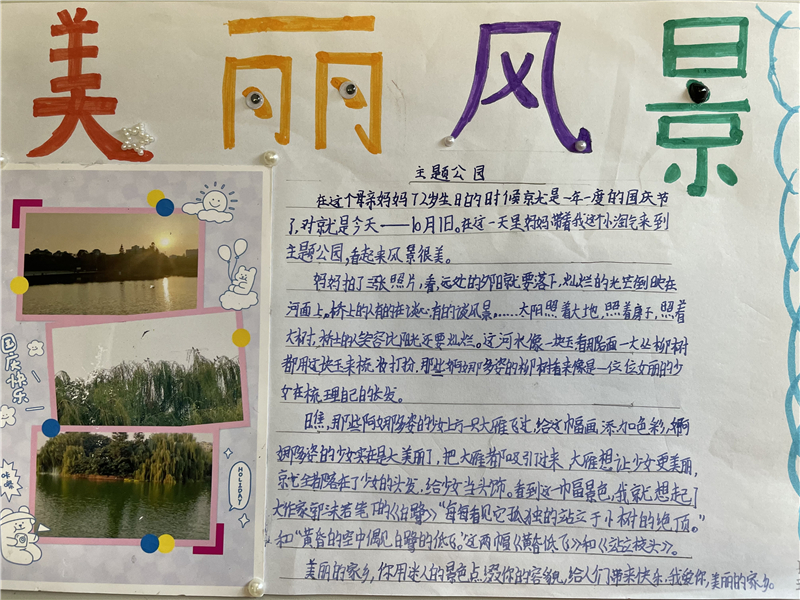 美丽风景
主题公园
在这个母亲妈妈72岁生日的时候京尤是一年一度的国庆节
了,对京尤是今天——10月1日。在这一天里妈妈带着我这个小淘气来到
主题公园,看起来风景很美。
妈妈拍了三张照片,看,远处的夕阳就要落下,灿烂的光芒倒映在
河面上。桥上的人有的在谈心,有的谈风景……太阳照着大地,照着房子,照着
大树,桥上的人笑容比阳光还要灿烂。这河水像一块玉
都用这块玉来梳妆打扮,那些婀娜多姿的柳树看来像是一位位美丽的少
女在梳理自己的长发。
那些婀娜多姿的少女上方一只大雁飞过,给这幅画添加色彩,
娜多姿的少女实在是太美丽了,把大雁都吸引过来,大雁想让少女更美丽,
京尤全都落在了少女的头发,给少女当头饰。看到这一幅景色,我就想起了
大作家郭沫若笔下的《白鹭》“每每看见它孤独的站立于小树的绝顶。”
和“黄昏的空中偶见白鹭的低飞。”这两幅《黄昏低飞》和《站立枝头》。
美丽的家乡,你用迷人的景色点缀你的容貌,给人们带来快乐,我爱你,美丽的家乡。
国庆快乐
HOLIDAY
咔嚓